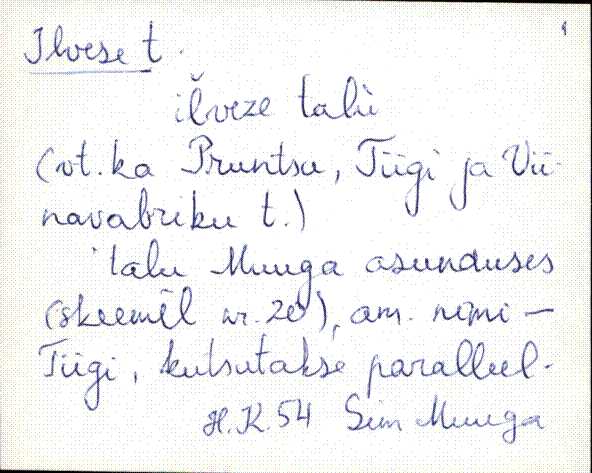 Ilvese t.
ilveze talu
(vt. ka Pruntsu, Tiigi ja Vii-
navabriku t.)
talu Muuga asunduses
(skeemil nr. 20), am. nimi -
Tiigi, kutsutakse paralleel-
H.K. 54 Sim Muuga